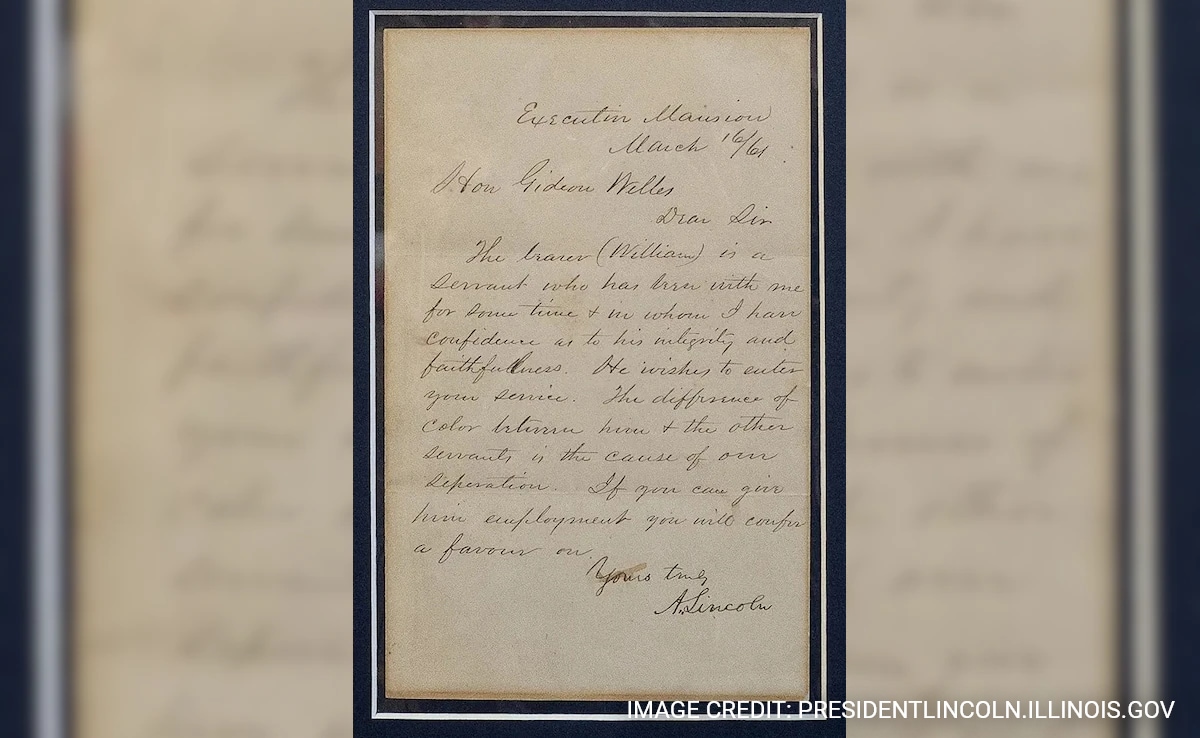 Executive Mansion
March 16/61.
Hon Gideon Welles
Dear Sir
The bearer (William) is a
servant who has been with me
for some time & in whom I have
confidence as to his integrity and
faithfullness. He wishes to enter
your service. The difference of
color between him & the other
servants is the cause of our
seperation. If you can give
him employment you will confer
a favour on
Yours truly
A. Lincoln
IMAGE CREDIT: PRESIDENTLINCOLN.ILLINOIS.GOV